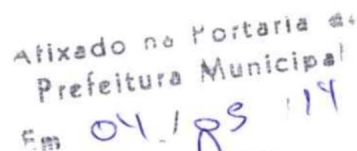 Afixado na Portaria da
Prefeitura Municipal
Em 04 / 85 / 14